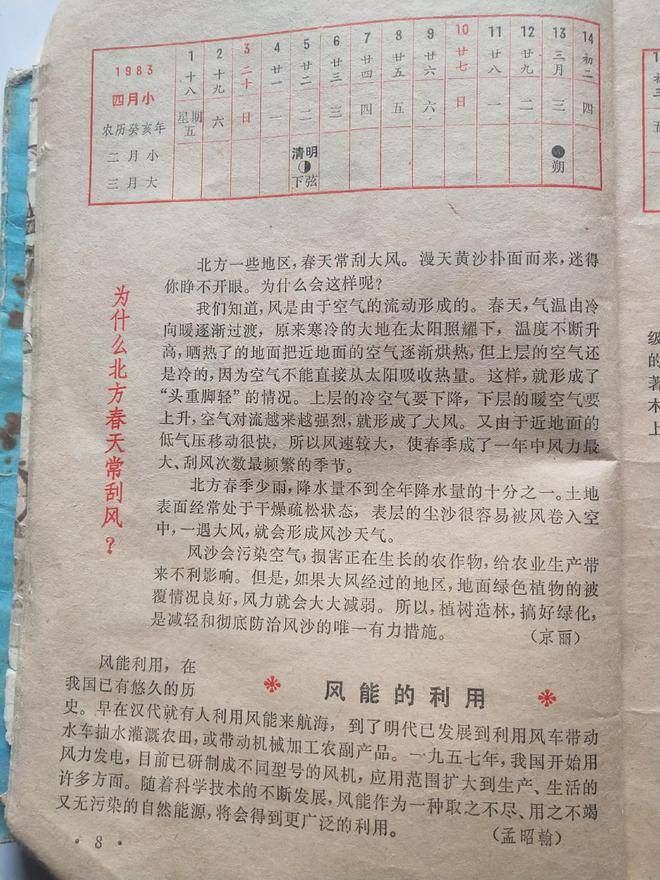 1983
四月小
农历癸亥年
二月小
三月大
1 2 3 4 5 6 7 8 9 10 11 12 13 14
十八 十九 二十 廿一 廿二 廿三 廿四 廿五 廿六 廿七 廿八 廿九 三月 初二
星期五 六 日 一 二 三 四 五 六 日 一 二 三 四
清明
下弦
朔
为什么北方春天常刮风？
北方一些地区，春天常刮大风。漫天黄沙扑面而来，迷得
你睁不开眼。为什么会这样呢？
我们知道，风是由于空气的流动形成的。春天，气温由冷
向暖逐渐过渡，原来寒冷的大地在太阳照耀下，温度不断升
高，晒热了的地面把近地面的空气逐渐烘热，但上层的空气还
是冷的，因为空气不能直接从太阳吸收热量。这样，就形成了
“头重脚轻”的情况。上层的冷空气要下降，下层的暖空气要
上升，空气对流越来越强烈，就形成了大风。又由于近地面的
低气压移动很快，所以风速较大，使春季成了一年中风力最
大、刮风次数最频繁的季节。
北方春季少雨，降水量不到全年降水量的十分之一。土地
表面经常处于干燥疏松状态，表层的尘沙很容易被风卷入空
中，一遇大风，就会形成风沙天气。
风沙会污染空气，损害正在生长的农作物，给农业生产带
来不利影响。但是，如果大风经过的地区，地面绿色植物的被
覆情况良好，风力就会大大减弱。所以，植树造林，搞好绿化，
是减轻和彻底防治风沙的唯一有力措施。（京丽）
风能的利用
风能利用，在
我国已有悠久的历
史。早在汉代就有人利用风能来航海，到了明代已发展到利用风车带动
水车抽水灌溉农田，或带动机械加工农副产品。一九五七年，我国开始用
风力发电，目前已研制成不同型号的风机，应用范围扩大到生产、生活的
许多方面。随着科学技术的不断发展，风能作为一种取之不尽、用之不竭
又无污染的自然能源，将会得到更广泛的利用。（孟昭翰）
·8·
级
的
著
木
上